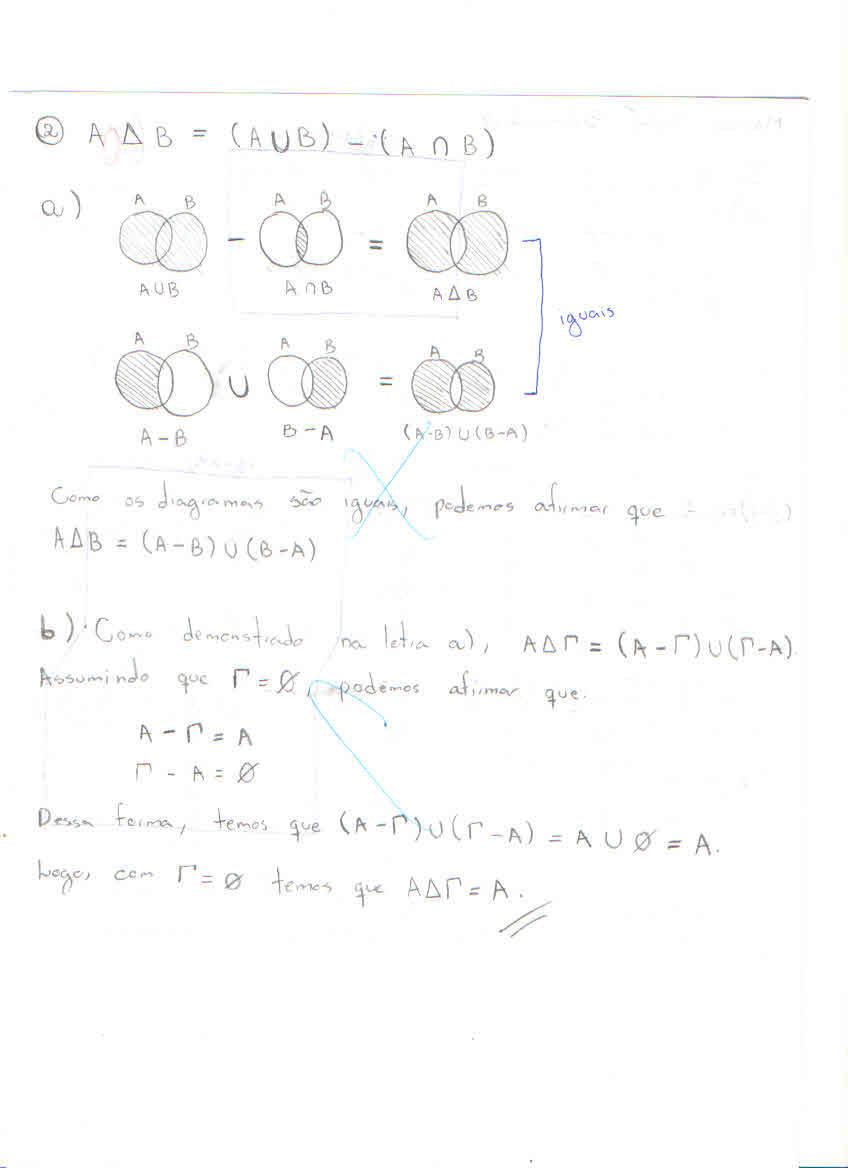 ② A Δ B = (A ∪ B) - (A ∩ B)
a)
A B A B A B
- =
A∪B A∩B AΔB
iguais
A B A B A B
∪ =
A-B B-A (A-B)∪(B-A)
Como os diagramas são iguais, podemos afirmar que
AΔB = (A-B)∪(B-A)
b) Como demonstrado na letra a), AΔΓ = (A-Γ)∪(Γ-A).
Assumindo que Γ=∅, podemos afirmar que:
A - Γ = A
Γ - A = ∅
Dessa forma, temos que (A-Γ)∪(Γ-A) = A ∪ ∅ = A.
Logo, com Γ=∅ temos que AΔΓ = A.